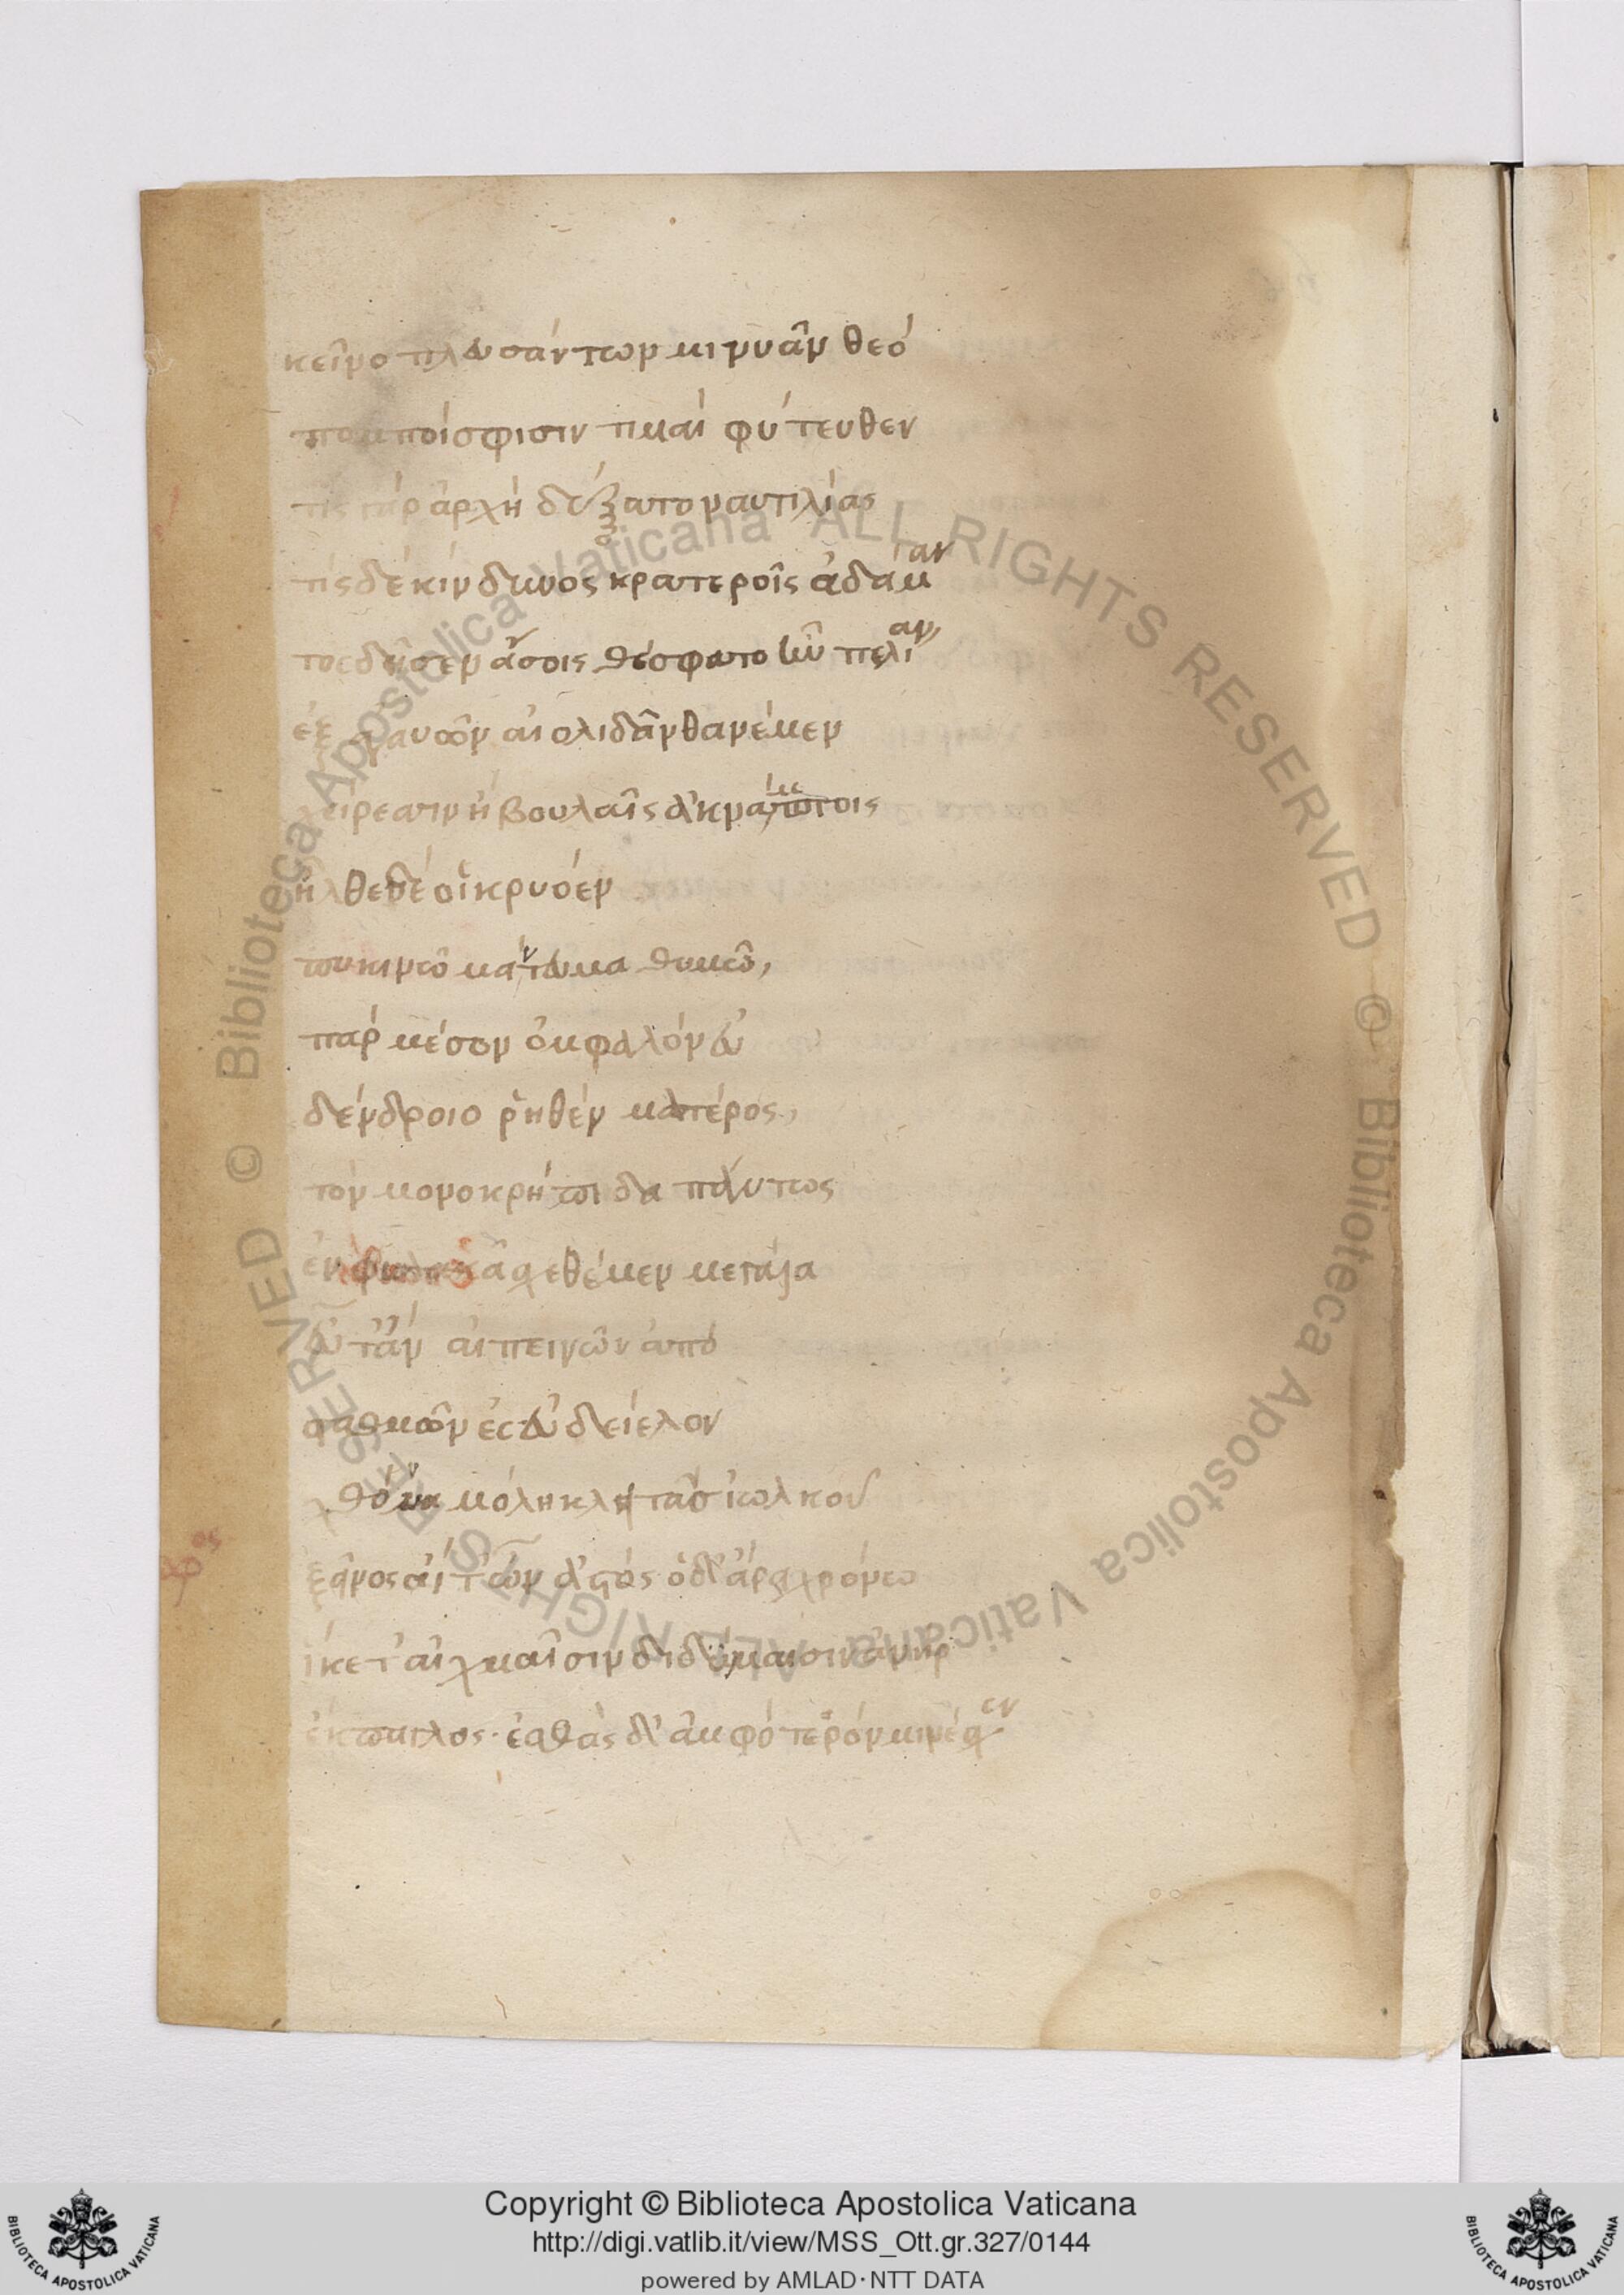 κεῖνο πλευσάντων μινυᾶν θεό
πομποί σφισιν τιμαὶ φύτευθεν
τίς γὰρ ἀρχὴ δέξατο ναυτιλίας
τίς δὲ κίνδυνος κρατεροῖς ἀδάμαν
τος δῆσεν ἅλοις θέσφατον ἦν πελίαν
ἐξ ἀγαυῶν αἰολιδᾶν θανέμεν
χείρεσσιν ἢ βουλαῖς ἀκνάμπτοις
ἦλθε δέ οἱ κρυόεν
πυκινῷ μάντευμα θυμῷ,
παρ μέσον ὀμφαλὸν εὐ
δένδροιο ῥηθὲν ματέρος,
τὸν μονοκρήπιδα πάντως
ἐν σχεθέμεν μεγάλα
εὖτ' ἂν αἰπεινῶν ἀπὸ
σταθμῶν ἐς εὐδείελον
χθόνα μόλῃ κλειτᾶς ἰωλκοῦ
ξεῖνος αἴτ' ὢν ἀστός ὁ δ' ἄρα χρόνῳ
ἵκετ' αἰχμαῖσιν διδύμαισιν ἀνὴρ
ἔκπαγλος· ἐσθὰς δ' ἀμφότερόν μιν ἔχεν
Copyright © Biblioteca Apostolica Vaticana
http://digi.vatlib.it/view/MSS_Ott.gr.327/0144
powered by AMLAD·NTT DATA
BIBLIOTECA APOSTOLICA VATICANA
BIBLIOTECA APOSTOLICA VATICANA
© Biblioteca Apostolica Vaticana ALL RIGHTS RESERVED © Biblioteca Apostolica Vaticana ALL RIGHTS RESERVED